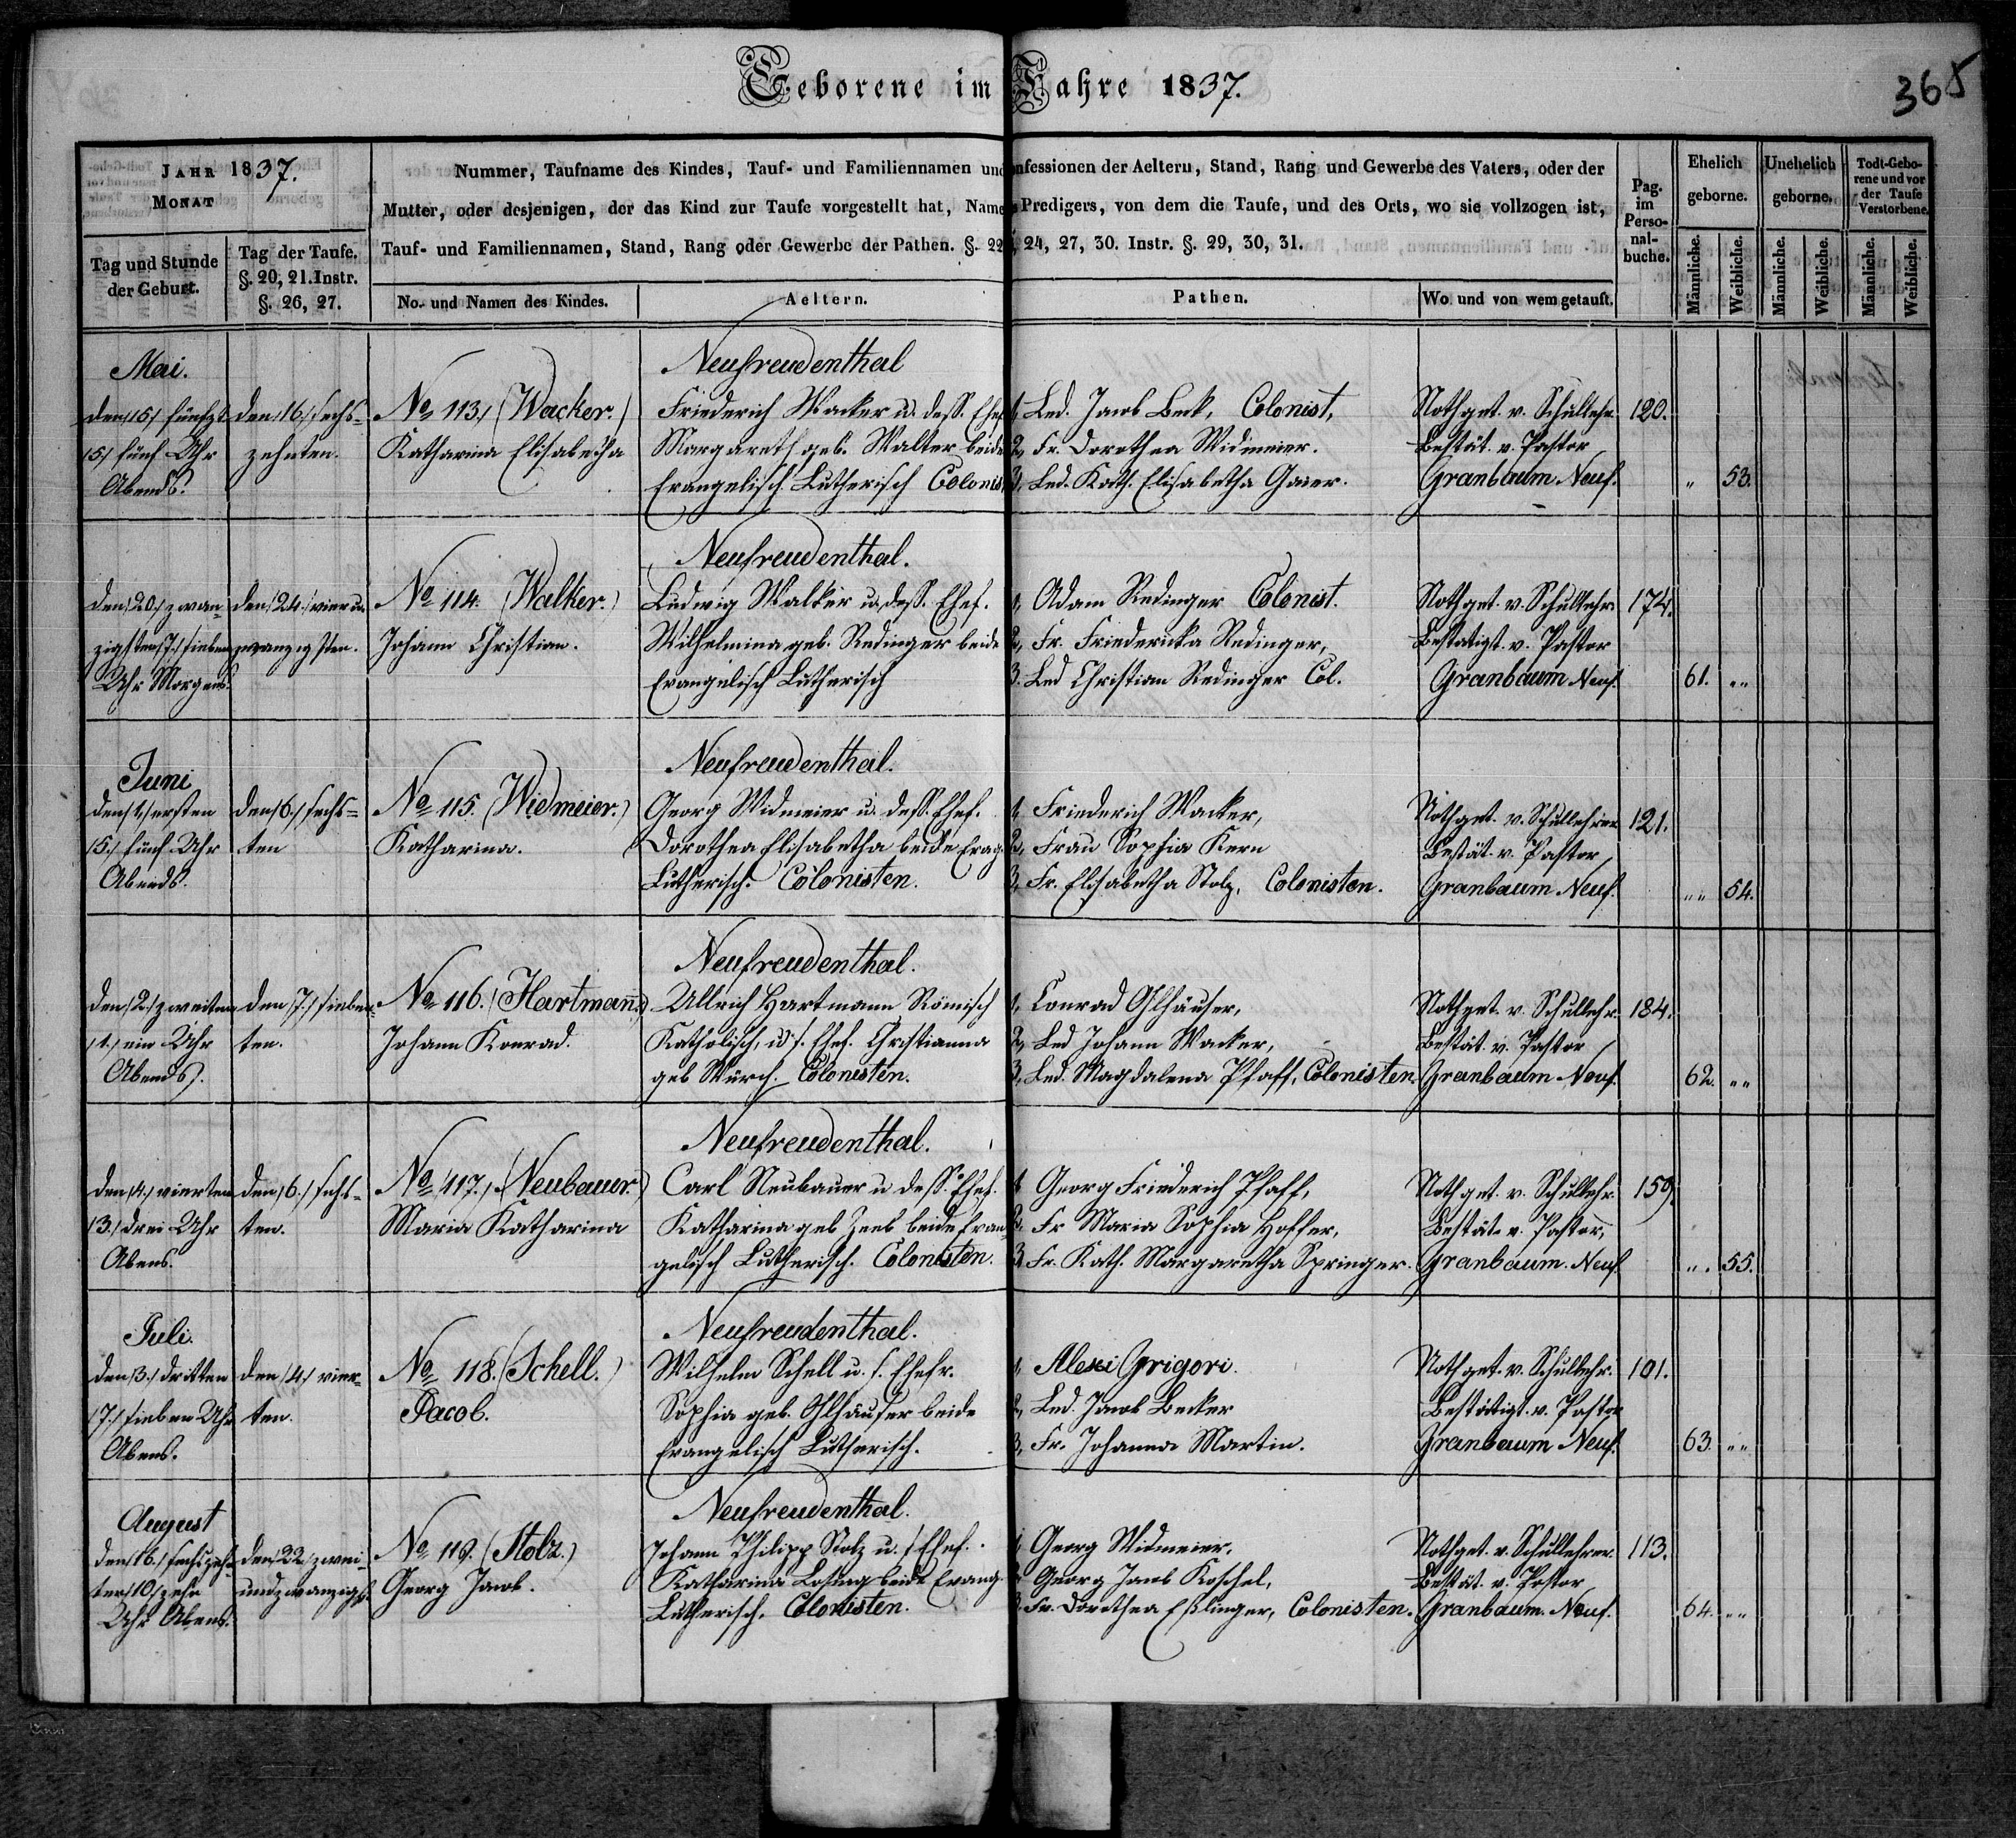 Geborene im Jahre 1837.
365
JAHR 1837.
MONAT
Tag und Stunde der Geburt.
Tag der Taufe. §. 20, 21. Instr. §. 26, 27.
Nummer, Taufname des Kindes, Tauf- und Familiennamen und Confessionen der Aeltern, Stand, Rang und Gewerbe des Vaters, oder der
Mutter, oder desjenigen, der das Kind zur Taufe vorgestellt hat, Name Predigers, von dem die Taufe, und des Orts, wo sie vollzogen ist,
Tauf- und Familiennamen, Stand, Rang oder Gewerbe der Pathen. §. 22, 24, 27, 30. Instr. §. 29, 30, 31.
No. und Namen des Kindes.
Aeltern.
Pathen.
Wo und von wem getauft.
Pag. im Perso-nal-buche.
Ehelich geborne.
Unehelich geborne.
Todt-Gebo-rene und vor der Taufe Verstorbene.
Männliche. Weibliche. Männliche. Weibliche. Männliche. Weibliche.
Mai.
den /15/ fünfz
/5/ fünf Uhr
Abends.
den /16./ sechs-
zehnten.
No 113./ (Wacker.)
Katharina Elisabetha
Neufreudenthal
Friederich Wacker u. dess. Ehef.
Margareth geb. Walter beide
Evangelisch Lutherisch Colonist
1, Led. Jacob Beck, Colonist,
2, Fr. Dorothea Widmeier.
3, Led. Kath. Elisabetha Gaier.
Nothget. v. Schullehr.
Bestät. v. Pastor
Granbaum Neuf.
120.
" 53.
den /20./ zwan-
zigsten /7./ sieben
Uhr Morgens.
den /24./ vier u.
zwanzigsten.
No 114. (Walker.)
Johann Christian.
Neufreudenthal.
Ludwig Walker u. dess. Ehef.
Wilhelmina geb. Redinger beide
Evangelisch Lutherisch
1, Adam Redinger Colonist.
2, Fr. Friedericka Redinger,
3. Led Christian Redinger Col.
Nothget. v. Schullehr.
Bestätigt. v. Pastor
Granbaum Neuf.
174.
61. ""
Juni
den /1./ ersten
/5./ fünf Uhr
Abends.
den /6./ sechs=
ten
No 115. (Widmeier.)
Katharina.
Neufreudenthal.
Georg Widmeier u. dess. Ehef.
Dorothea Elisabetha beide Evag.
Lutherisch. Colonisten.
1, Friederich Wacker,
2, Frau Sophia Kern
3, Fr. Elisabetha Stolz, Colonisten.
Nothget. v. Schullehrer
Bestät. v. Pastor
Granbaum Neuf.
121.
"" 54.
den /2./ zweiten
/1./ ein Uhr
Abends.
den /7./ sieben-
ten.
No 116. (Hartmann.)
Johann Konrad.
Neufreudenthal.
Ullrich Hartmann Römisch
Katholisch, u. s. Ehef. Christianna
geb Würch. Colonisten.
1, Conrad Ohlhäuser,
2, Led Johann Wacker,
3, Led. Magdalena Pfaff, Colonisten.
Nothget. v. Schullehr.
Bestät. v. Pastor
Granbaum Neuf.
184.
62. ""
den /4./ vierten
/3./ drei Uhr
Abens.
den /6./ sechs-
ten.
No 117. (Neubauer.)
Maria Katharina
Neufreudenthal.
Carl Neubauer u dess. Ehef.
Katharina geb Zeeb beide Evan-
gelisch Lutherisch. Colonisten.
1 Georg Friederich Pfaff,
2, Fr Maria Sophia Hoffer,
3, Fr. Kath. Margaretha Springer.
Nothget. v. Schullehr.
Bestät. v. Pastor,
Granbaum. Neuf.
159.
"" 55.
Juli.
den /3./ dritten
/7./ sieben Uhr
Abens.
den /4./ vier-
ten.
No 118. (Schell.)
Jacob.
Neufreudenthal.
Wilhelm Schell u. s. Ehefr.
Sophia geb. Ohlhäuser beide
Evangelisch Lutherisch.
1, Alexi Grigori.
2, Led. Jacob Becker
3, Fr. Johanna Martin.
Nothget. v. Schullehr.
Bestätigt. v. Pastor
Granbaum Neuf.
101.
63. ""
August
den /16./ sechzeh-
ten /10/ zehn
Uhr Abens.
den /22/ zwei-
undzwanzigst.
No 119. (Stolz.)
Georg Jacob.
Neufreudenthal.
Johann Philipp Stolz u. s Ehef.
Katharina beide Evang.
Lutherisch. Colonisten.
1 Georg Widmeier,
2 Georg Jacob Koschel,
3. Fr. Dorothea Eßlinger, Colonisten.
Nothget. v. Schullehrer.
Bestät. v. Pastor
Granbaum. Neuf.
113.
64. ""